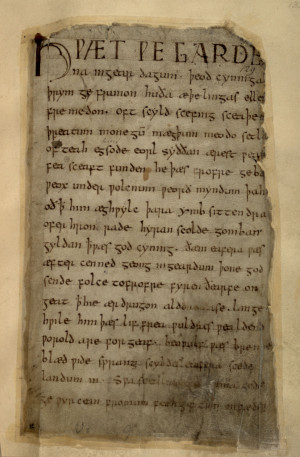 HǷÆT ǷE GARDE
na ingear dagum. þeod cyninga
þrym ge frunon huða æþelingas elle
fre medon. oft scyld scefing sceaþe
þreatum monegū mægþum meodo setla
of teah egsode eorl syððan ærest ƿear
fea sceaft funden he þæs frofre geba
ƿeox under ƿolcnum ƿeorð myndum þah
oð ꝥ him æghƿylc þara ymb sittendra
ofer hron rade hyran scolde gomban
gyldan ꝥ ƿæs god cyning. ðæm eafera ƿæs
æfter cenned geong ingeardum þone god
sende folce tofrofre fyren ðearfe on
geat ꝥ hie ær drugon aldor ase. lange
hƿile him þæs lif frea ƿuldres ƿealdend
ƿorold are for geaf. beoƿulf ƿæs breme
blæd ƿide sprang scyldes eafera scede
landum in. Sƿa sceal uma gode
ge ƿyrcean fromum feoh giftum on fæder